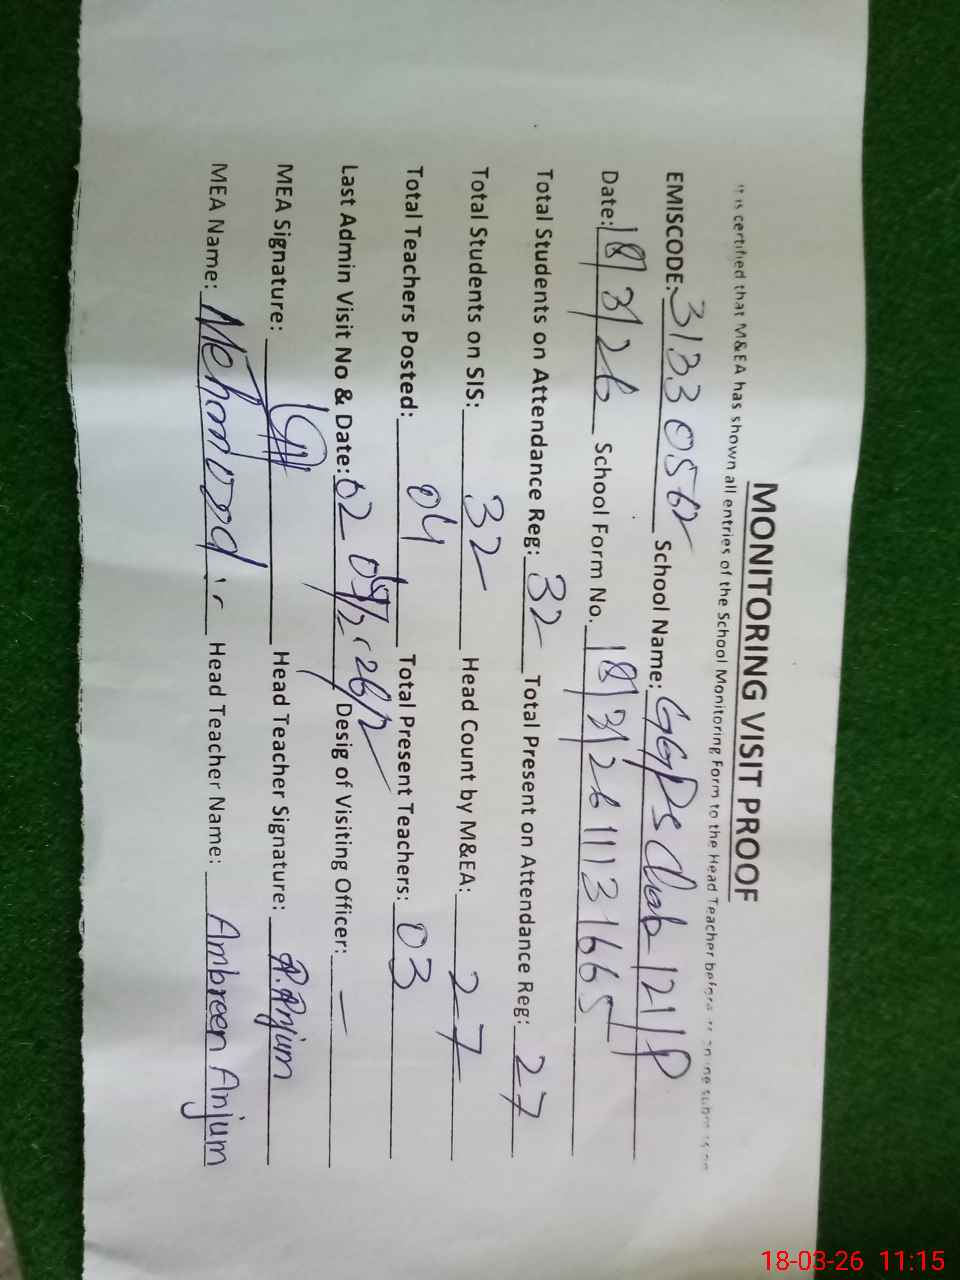 MONITORING VISIT PROOF
It is certified that M&EA has shown all entries of the School Monitoring Form to the Head Teacher before
EMISCODE: 31330562 School Name: GGPS Chak 121/P
Date: 18/3/26 School Form No. 18/3/2611131665
Total Students on Attendance Reg: 32 Total Present on Attendance Reg: 27
Total Students on SIS: 32 Head Count by M&EA: 27
Total Teachers Posted: 04 Total Present Teachers: 03
Last Admin Visit No & Date: 02 Desig of Visiting Officer: —
MEA Signature: Head Teacher Signature: A.Anjum
MEA Name: Mehmood Head Teacher Name: Ambreen Anjum
18-03-26 11:15